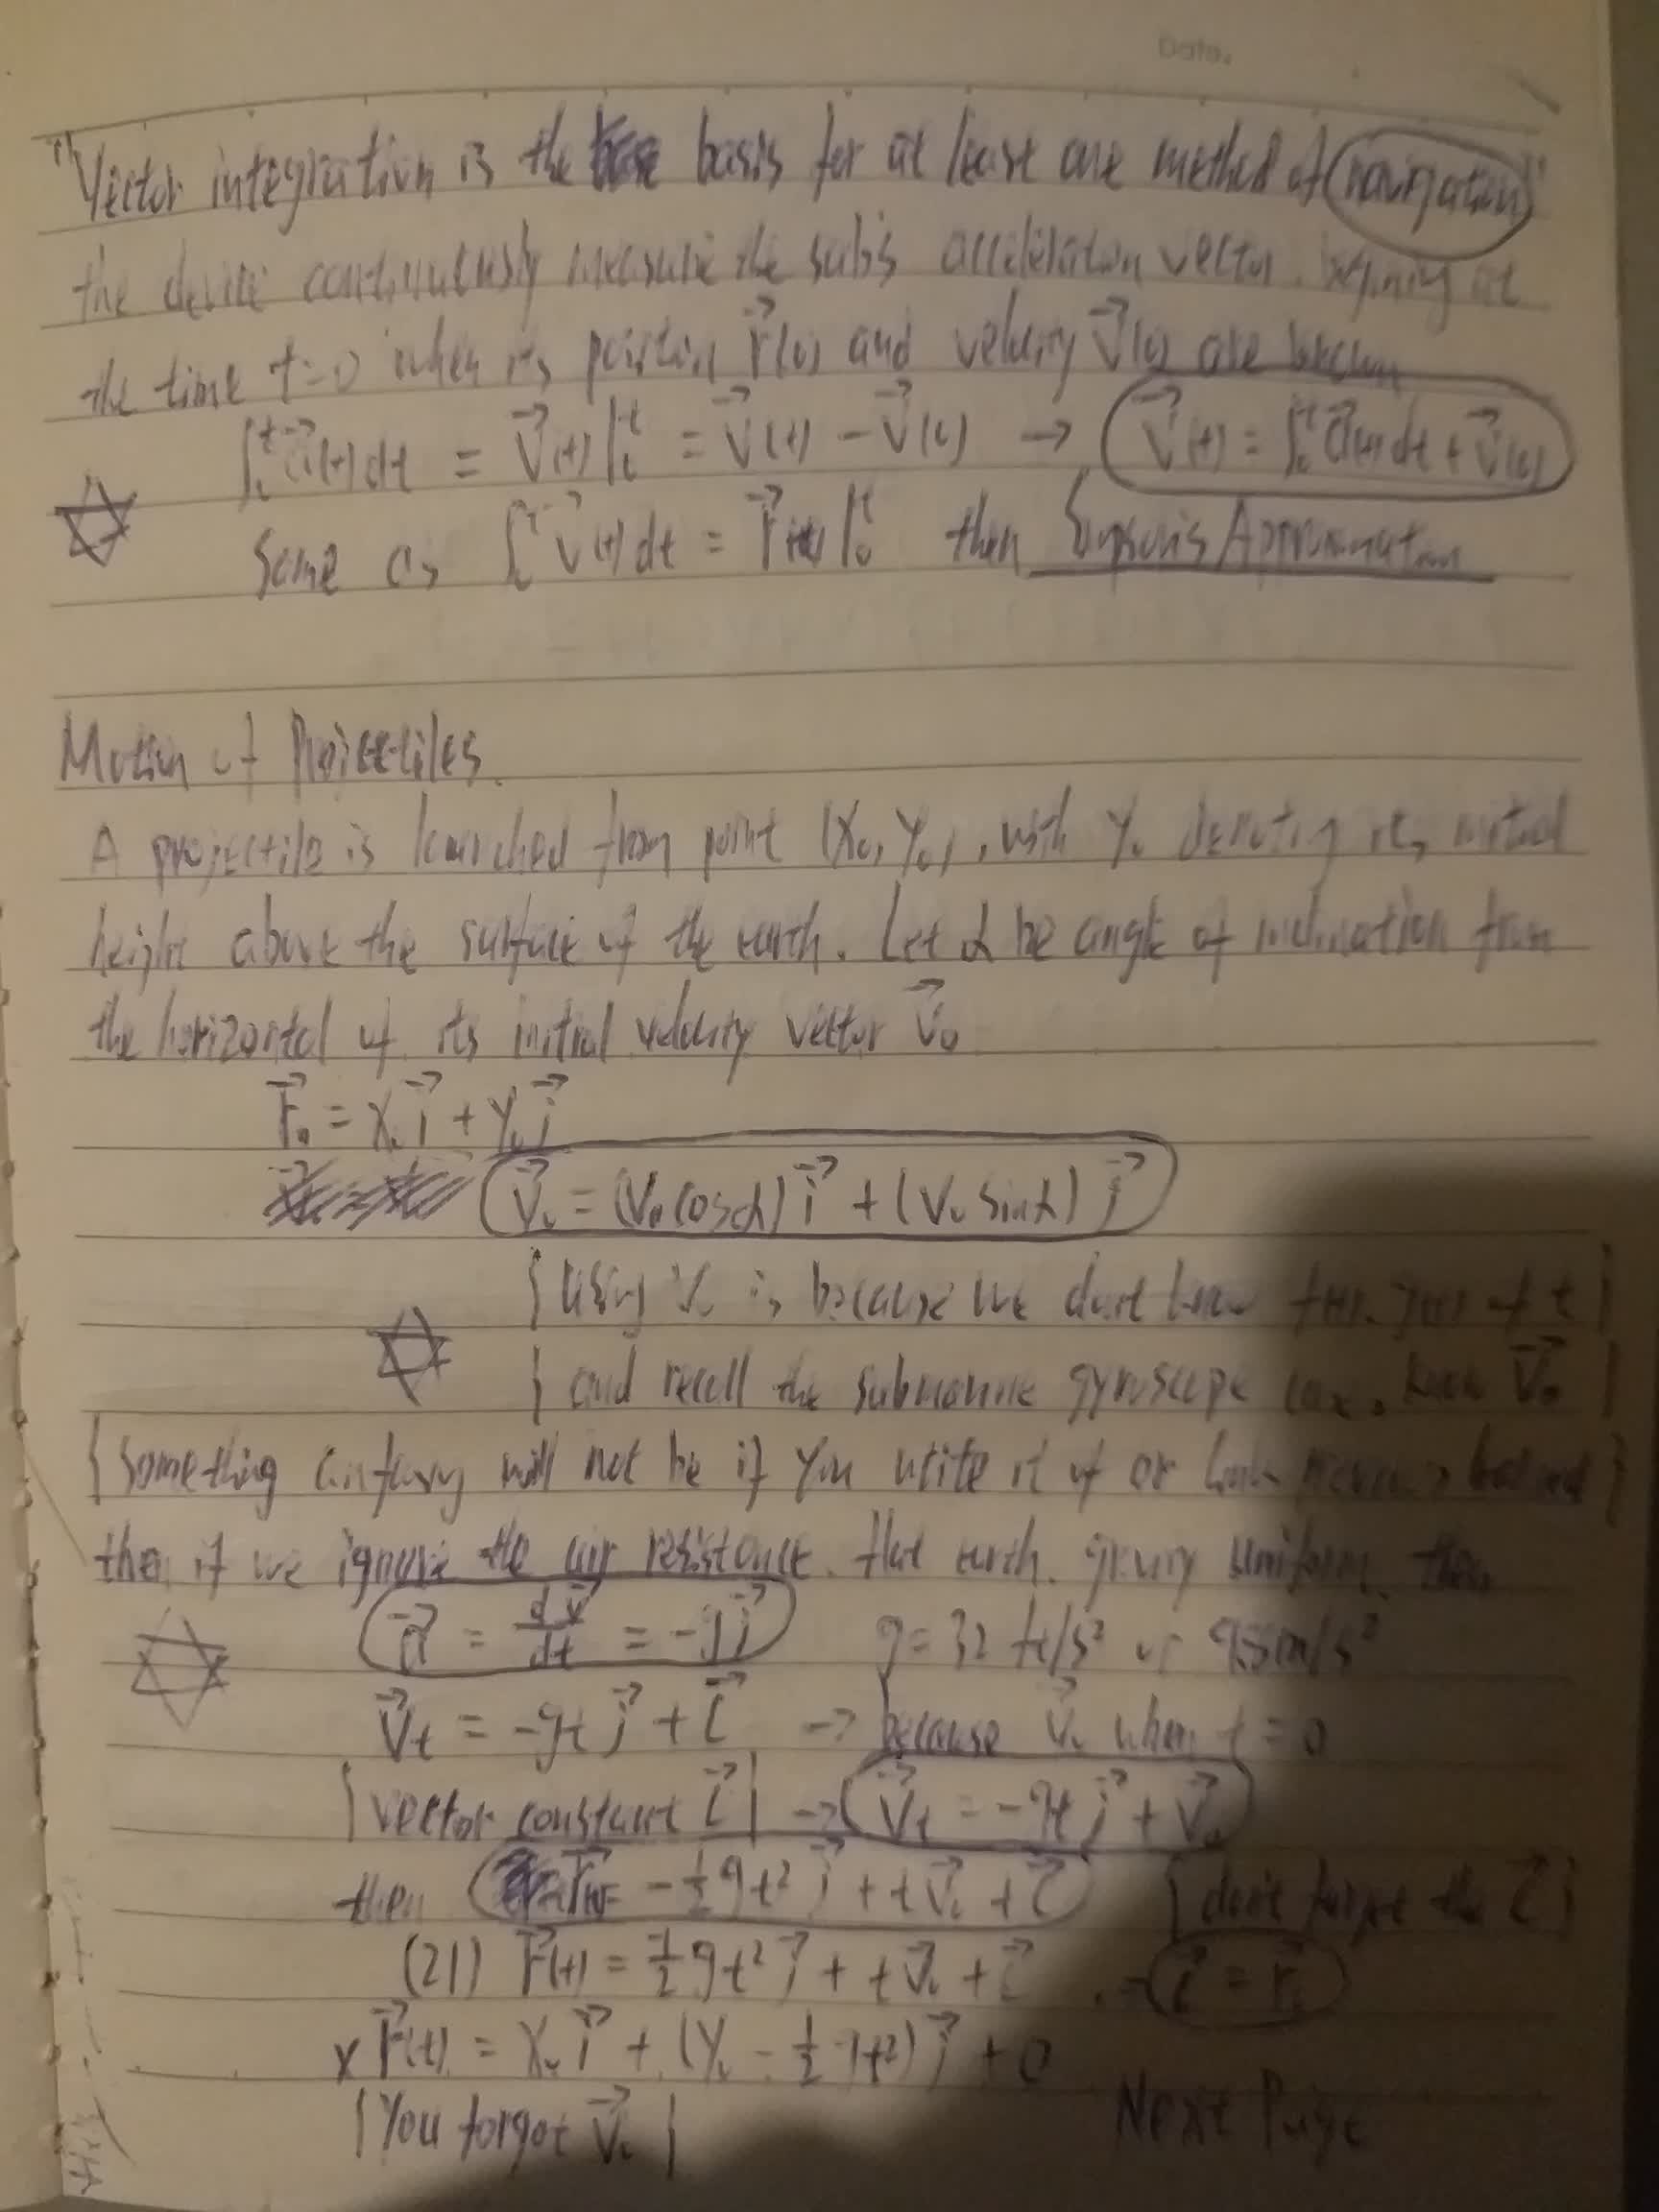 Date.
"Vector integration is the basis for at least one method of navigation"
the device continuously measure the sub's acceleration vector. begining at
the time t=0 when its position r⃗(0) and velocity v⃗(0) are known
∫₀ᵗ a⃗(t)dt = v⃗(t)|₀ᵗ = v⃗(t) − v⃗(0) → v⃗(t) = ∫₀ᵗ a⃗(t)dt + v⃗(0)
Same as ∫₀ᵗ v⃗(t)dt = r⃗(t)|₀ᵗ then Simpson's Approximation
Motion of Projectiles.
A projectile is launched from point (x₀, y₀), with y₀ denoting its initial
height above the surface of the earth. Let α be angle of inclination from
the horizontal of its initial velocity vector v⃗₀
r⃗₀ = x₀i⃗ + y₀j⃗
v⃗₀ = (v₀cosα)i⃗ + (v₀sinα)j⃗
{ Using v₀ is because we don't know of t }
{ and recall the submarine gyroscope case, know v⃗₀ }
{ Something will not be if you write it or behind }
then if we ignore the air resistance. flat earth. gravity uniform. then
a⃗ = dv⃗/dt = −gj⃗ g = 32 ft/s² or 9.8m/s²
v⃗t = −gtj⃗ + C⃗ → because v⃗₀ when t = 0
{vector constant C⃗} → v⃗t = −gtj⃗ + v⃗₀
then r⃗(t) = −½gt²j⃗ + tv⃗₀ + C⃗ {don't forget the C⃗}
(21) r⃗(t) = ½gt²j⃗ + tv⃗₀ + C⃗. → C⃗ = r⃗₀
x r⃗(t) = x₀i⃗ + (y₀ − ½gt²)j⃗ + 0
{You forgot v⃗₀} Next Page